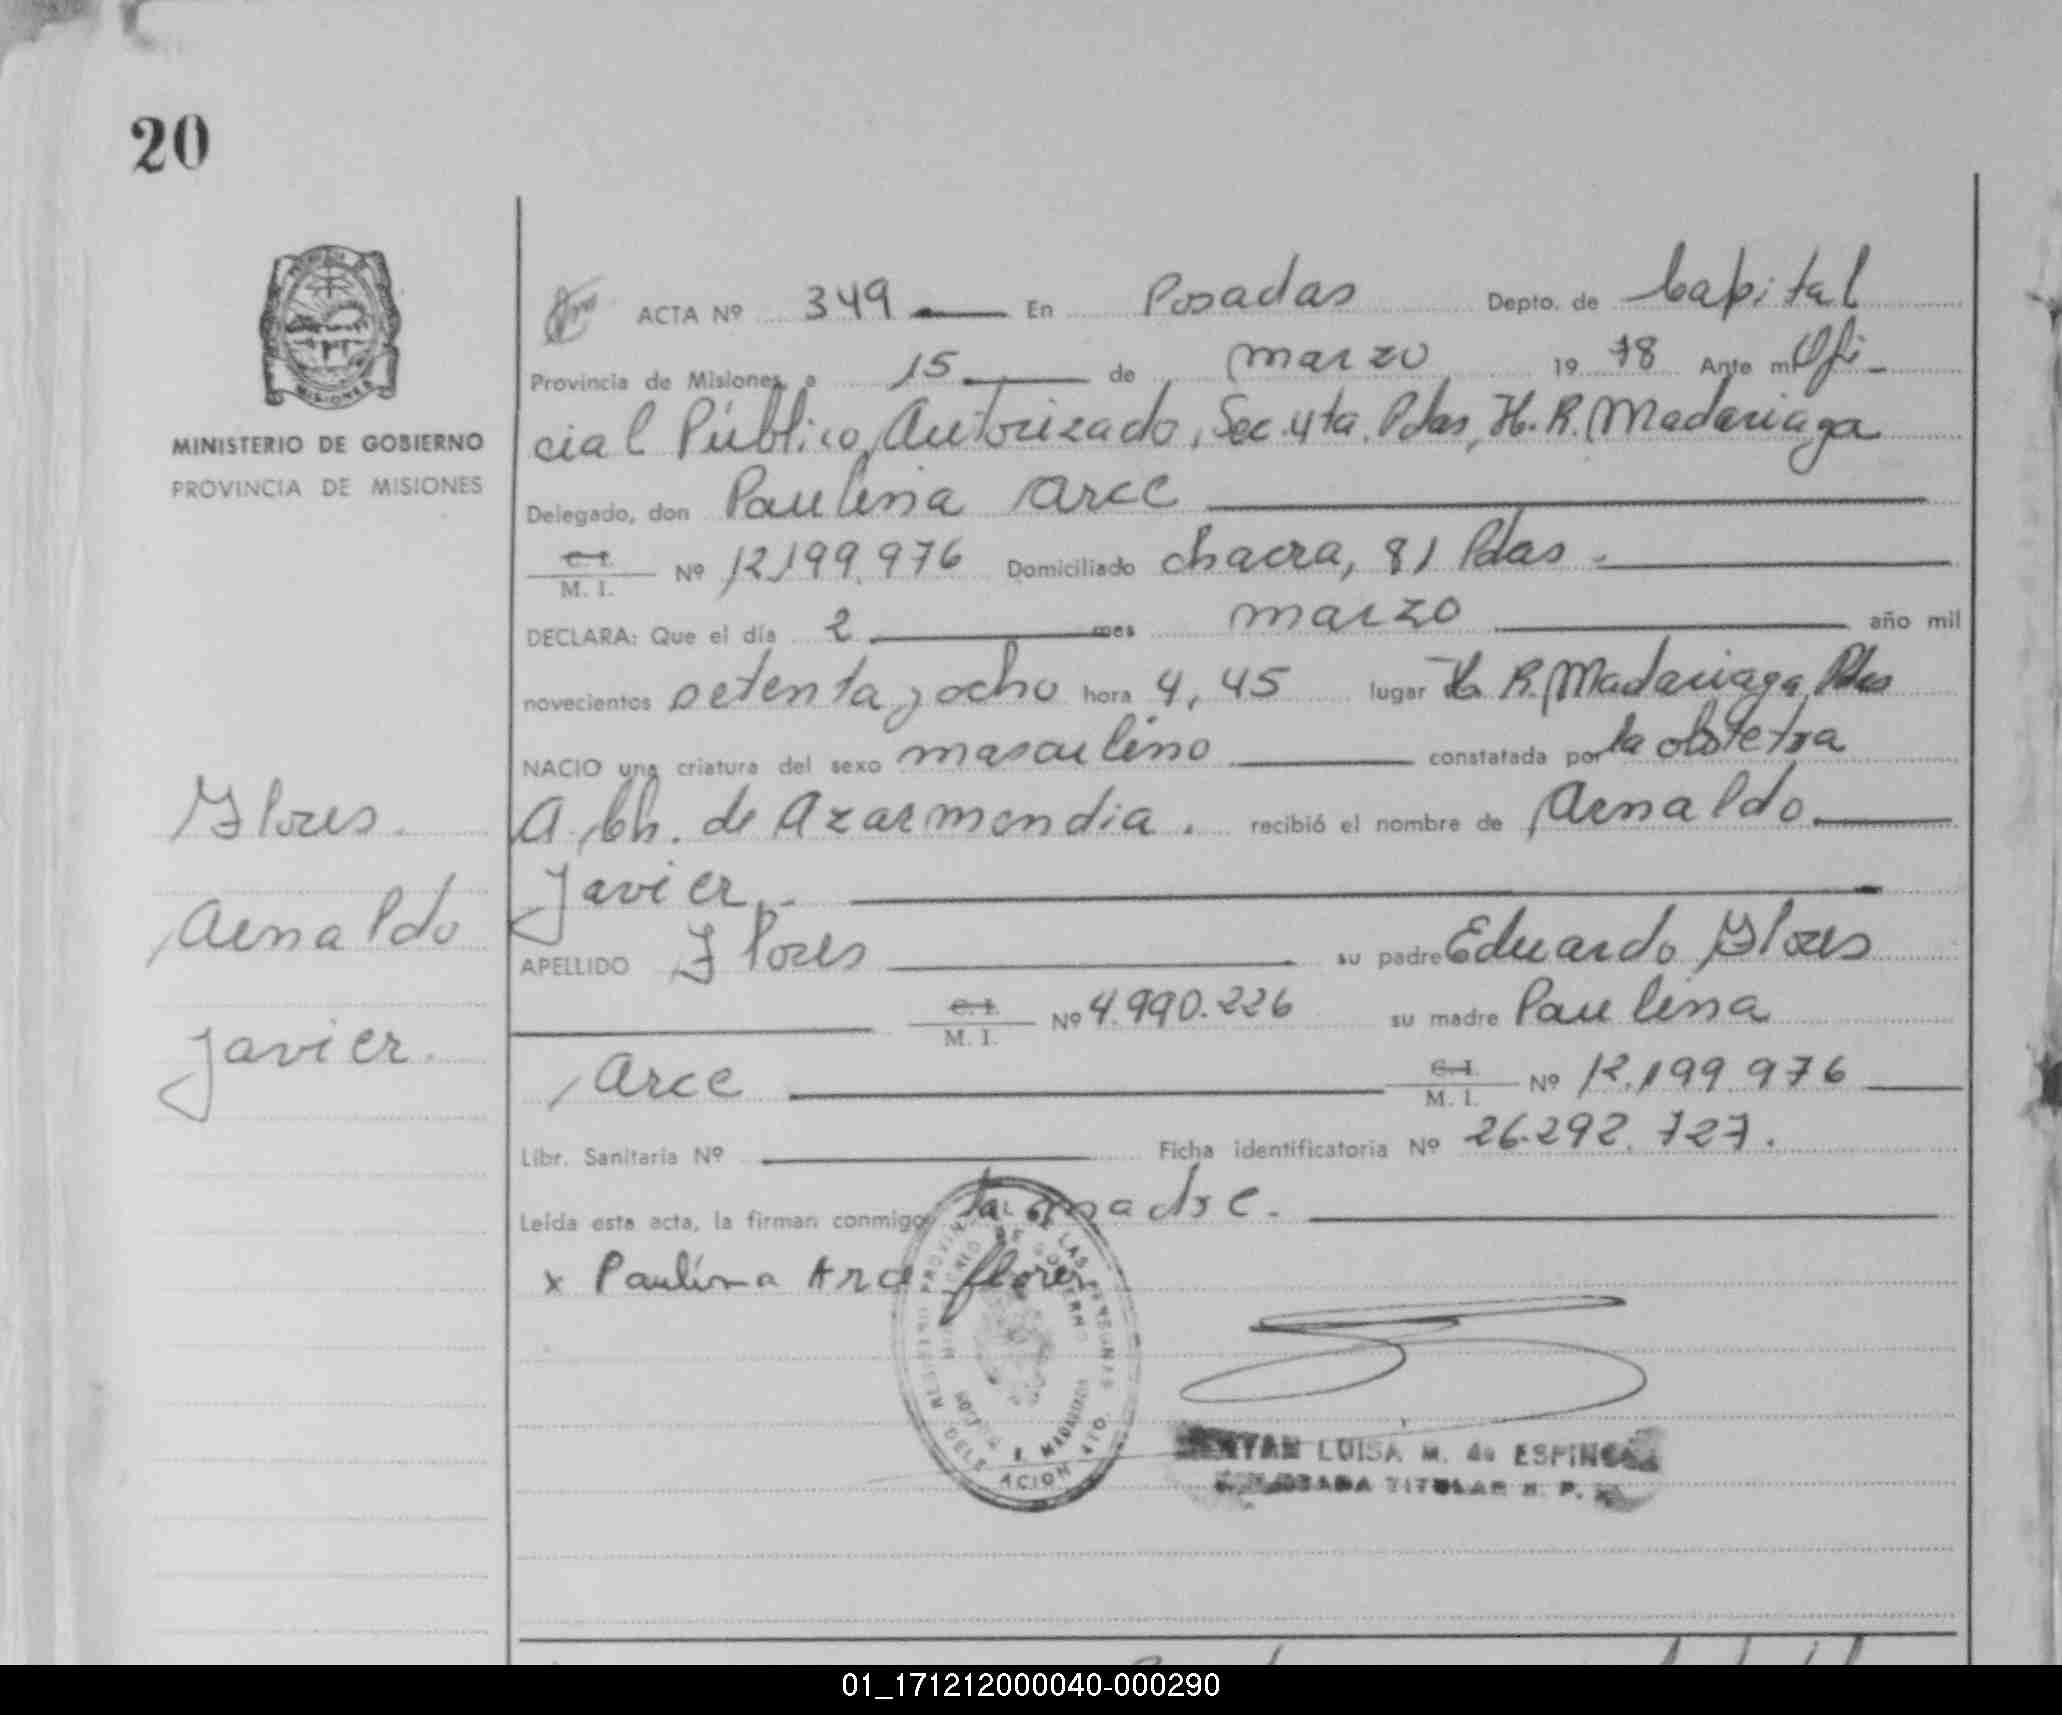 20
MINISTERIO DE GOBIERNO
PROVINCIA DE MISIONES
Flores.
Arnaldo
Javier.
ACTA Nº 349 En Posadas Depto. de Capital
Provincia de Misiones, a 15 de marzo 1978 Ante mí Ofi-
cial Público Autorizado, Sec. 4ta. Pdas, H. R. Madariaga
Delegado, don Paulina Arce
C. I.
M. I. Nº 12.199.976 Domiciliado chacra, 81 Pdas.
DECLARA: Que el día 2 mes marzo año mil
novecientos setenta y ocho hora 4,45 lugar H. R. Madariaga Pdas
NACIO una criatura del sexo masculino constatada por la obstetra
A. Ch. de Azarmendia. recibió el nombre de Arnaldo
Javier.
APELLIDO Flores su padre Eduardo Flores
C. I.
M. I. Nº 4.990.226 su madre Paulina
Arce C. I.
M. I. Nº 12.199.976
Libr. Sanitaria Nº Ficha identificatoria Nº 26.292.727.
Leída esta acta, la firman conmigo la madre.
x Paulina Arce flores
LUISA M. de ESPINOSA
TITULAR R. P.
01_171212000040-000290